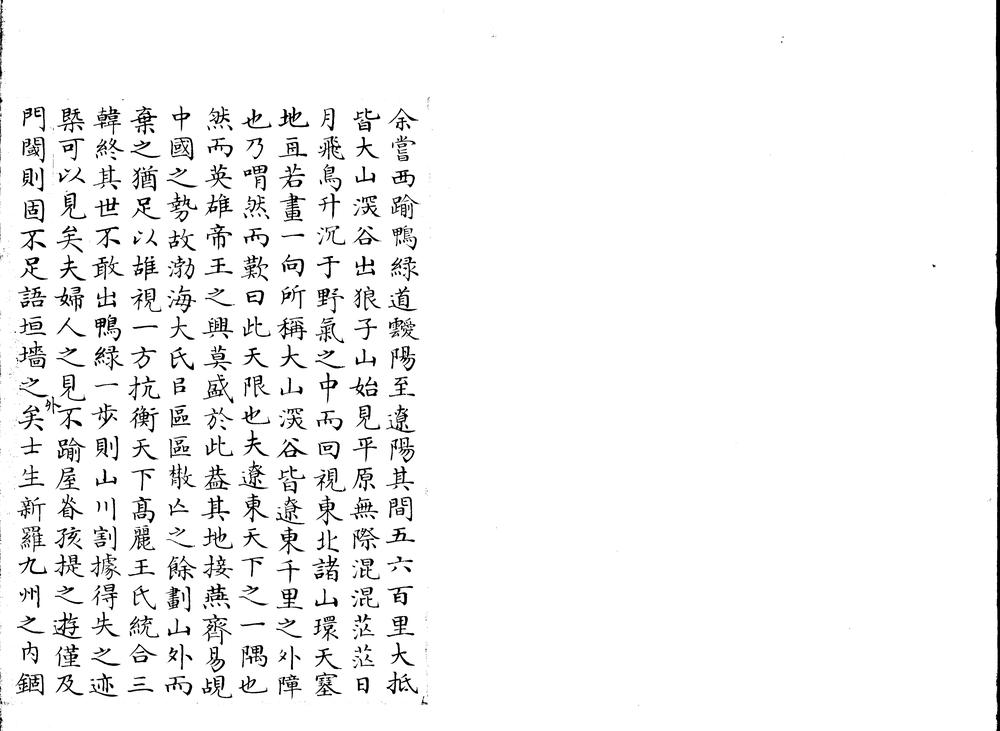 余嘗西踰鴨綠道靉陽至遼陽其間五六百里大抵
皆大山深谷出狼子山始見平原無際混混茫茫日
月飛鳥升沉于野氣之中而回視東北諸山環天塞
地亘若畫一向所稱大山深谷皆遼東千里之外障
也乃喟然而歎曰此天限也夫遼東天下之一隅也
然而英雄帝王之興莫盛於此葢其地接燕齊易覘
中國之勢故渤海大氏㠯區區散亾之餘劃山外而
棄之猶足以雄視一方抗衡天下高麗王氏統合三
韓終其世不敢出鴨綠一步則山川割據得失之迹
槩可以見矣夫婦人之見不踰屋脊孩提之遊僅及
門閾則固不足語垣墻之外矣士生新羅九州之內錮